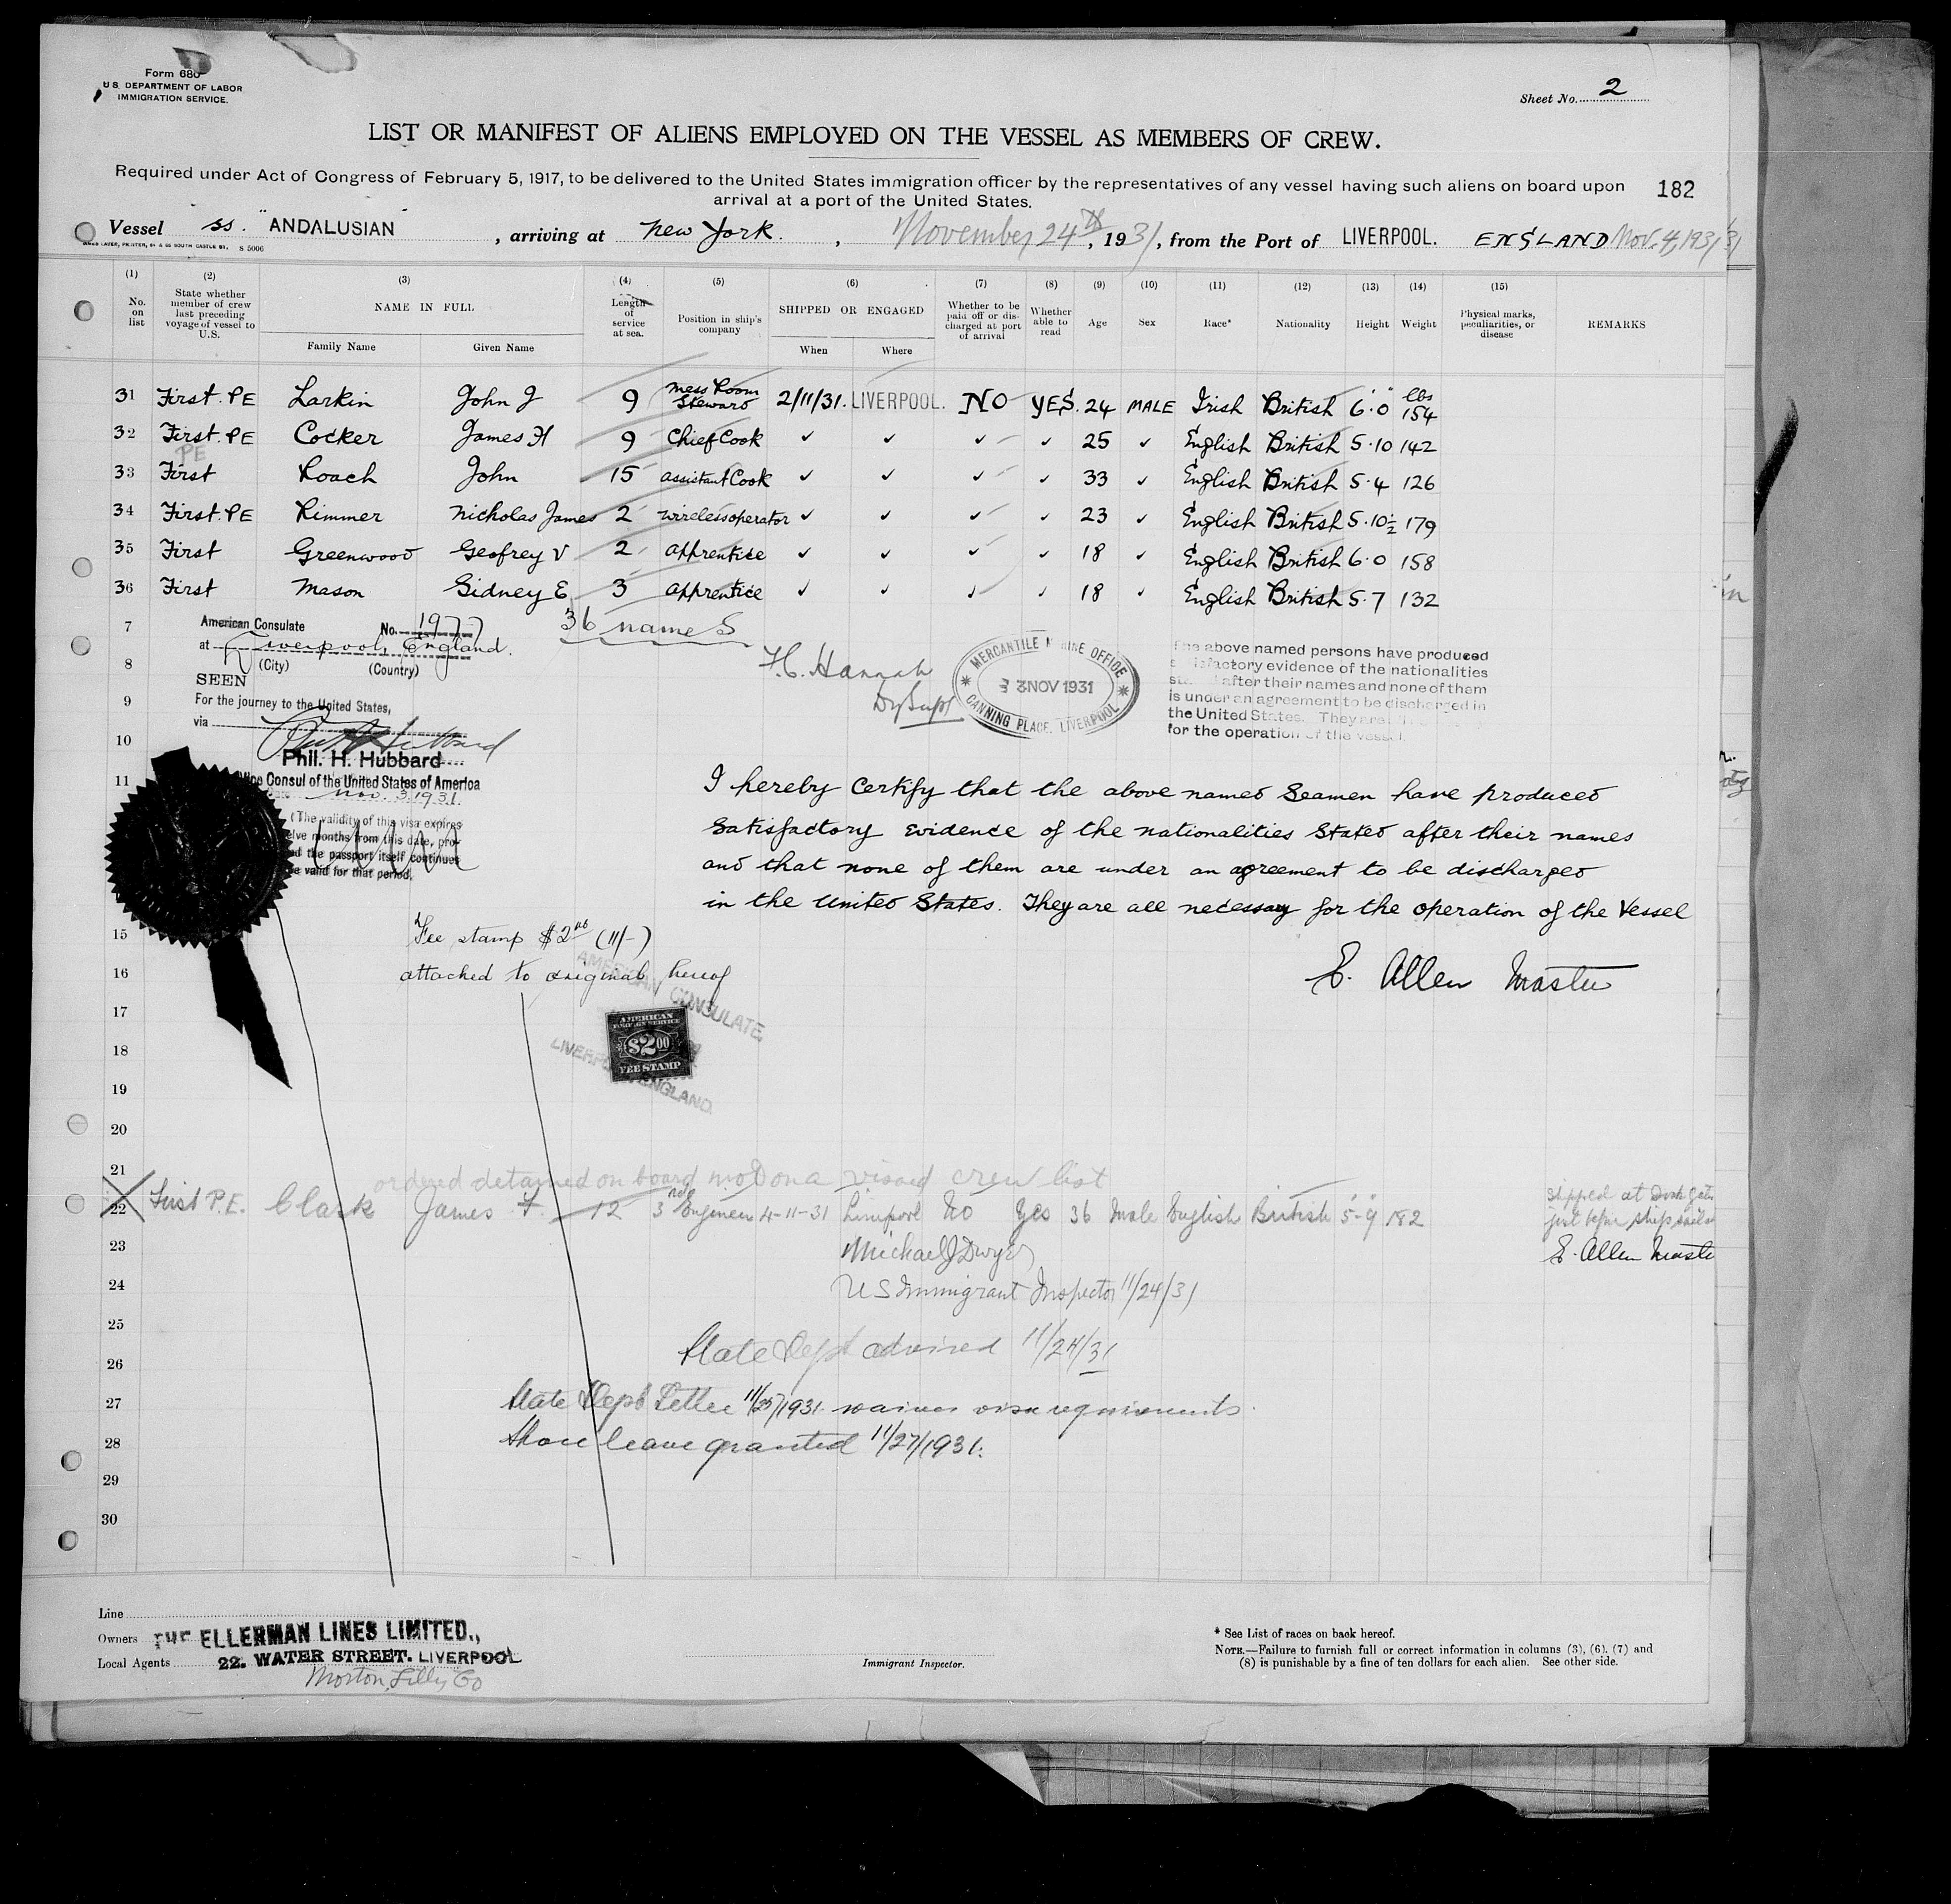 Form 680
U.S. DEPARTMENT OF LABOR
IMMIGRATION SERVICE.
Sheet No. 2
LIST OR MANIFEST OF ALIENS EMPLOYED ON THE VESSEL AS MEMBERS OF CREW.
Required under Act of Congress of February 5, 1917, to be delivered to the United States immigration officer by the representatives of any vessel having such aliens on board upon
arrival at a port of the United States.
182
Vessel ss. "ANDALUSIAN", arriving at New York., November 24th, 1931, from the Port of LIVERPOOL. ENGLAND Nov. 4, 1931
(1) (2) (3) (4) (5) (6) (7) (8) (9) (10) (11) (12) (13) (14) (15)
No. on list
State whether member of crew last preceding voyage of vessel to U.S.
NAME IN FULL
Family Name Given Name
Length of service at sea.
Position in ship's company
SHIPPED OR ENGAGED
When Where
Whether to be paid off or discharged at port of arrival
Whether able to read
Age
Sex
Race*
Nationality
Height
Weight
Physical marks, peculiarities, or disease
REMARKS
31 First. PE Larkin John J 9 Mess Room Steward 2/11/31. LIVERPOOL. NO YES. 24 MALE Irish British 6'.0" lbs 154
32 First. PE Cocker James H 9 Chief Cook ✓ ✓ ✓ ✓ 25 ✓ English British 5.10 142
PE
33 First Roach John 15 assistant Cook ✓ ✓ ✓ ✓ 33 ✓ English British 5.4 126
34 First. PE Rimmer Nicholas James 2 wireless operator ✓ ✓ ✓ ✓ 23 ✓ English British 5.10½ 179
35 First Greenwood Geofrey V 2 apprentice ✓ ✓ ✓ ✓ 18 ✓ English British 6.0 158
36 First Mason Sidney E 3 apprentice ✓ ✓ ✓ ✓ 18 ✓ English British 5.7 132
36 names
7
American Consulate No. 1977
at Liverpool, England.
(City) (Country)
8
SEEN
9
For the journey to the United States,
via
10
Phil. H. Hubbard
11
Vice Consul of the United States of America
Nov. 3, 1931.
(The validity of this visa expires
twelve months from this date, pro-
the passport itself continues
valid for that period.
H. Hannah
Dy Supt
MERCANTILE MARINE OFFICE
3 NOV 1931
CANNING PLACE, LIVERPOOL
The above named persons have produced
satisfactory evidence of the nationalities
stated after their names and none of them
is under an agreement to be discharged in
the United States. They are
for the operation of the vessel.
I hereby Certify that the above named Seamen have produced
Satisfactory evidence of the nationalities Stated after their names
and that none of them are under an agreement to be discharged
in the United States. They are all necessary for the operation of the Vessel
E. Allen Master
15
Fee stamp $2.00 (11/-)
16
attached to original hereof
AMERICAN CONSULATE
LIVERPOOL ENGLAND.
AMERICAN FOREIGN SERVICE
$2.00
FEE STAMP
17
18
19
20
21
ordered detained on board not on a visaed crew list
22 First P.E. Clark James F. 12 3rd Engineer 4-11-31 Liverpool No Yes 36 Male English British 5'-9" 182
shipped at Dock gate
just before ship sailed
E. Allen Master
23
Michael J Dwyer
24
US Immigrant Inspector 11/24/31
25
State Dept advised 11/24/31
26
27
State Dept Letter 11/25/1931 waives visa requirements.
28
Shore leave granted 11/27/1931.
29
30
Line
Owners THE ELLERMAN LINES LIMITED.,
Local Agents 22. WATER STREET. LIVERPOOL
Morton, Lilly, Co
Immigrant Inspector.
* See List of races on back hereof.
NOTE.—Failure to furnish full or correct information in columns (3), (6), (7) and
(8) is punishable by a fine of ten dollars for each alien. See other side.